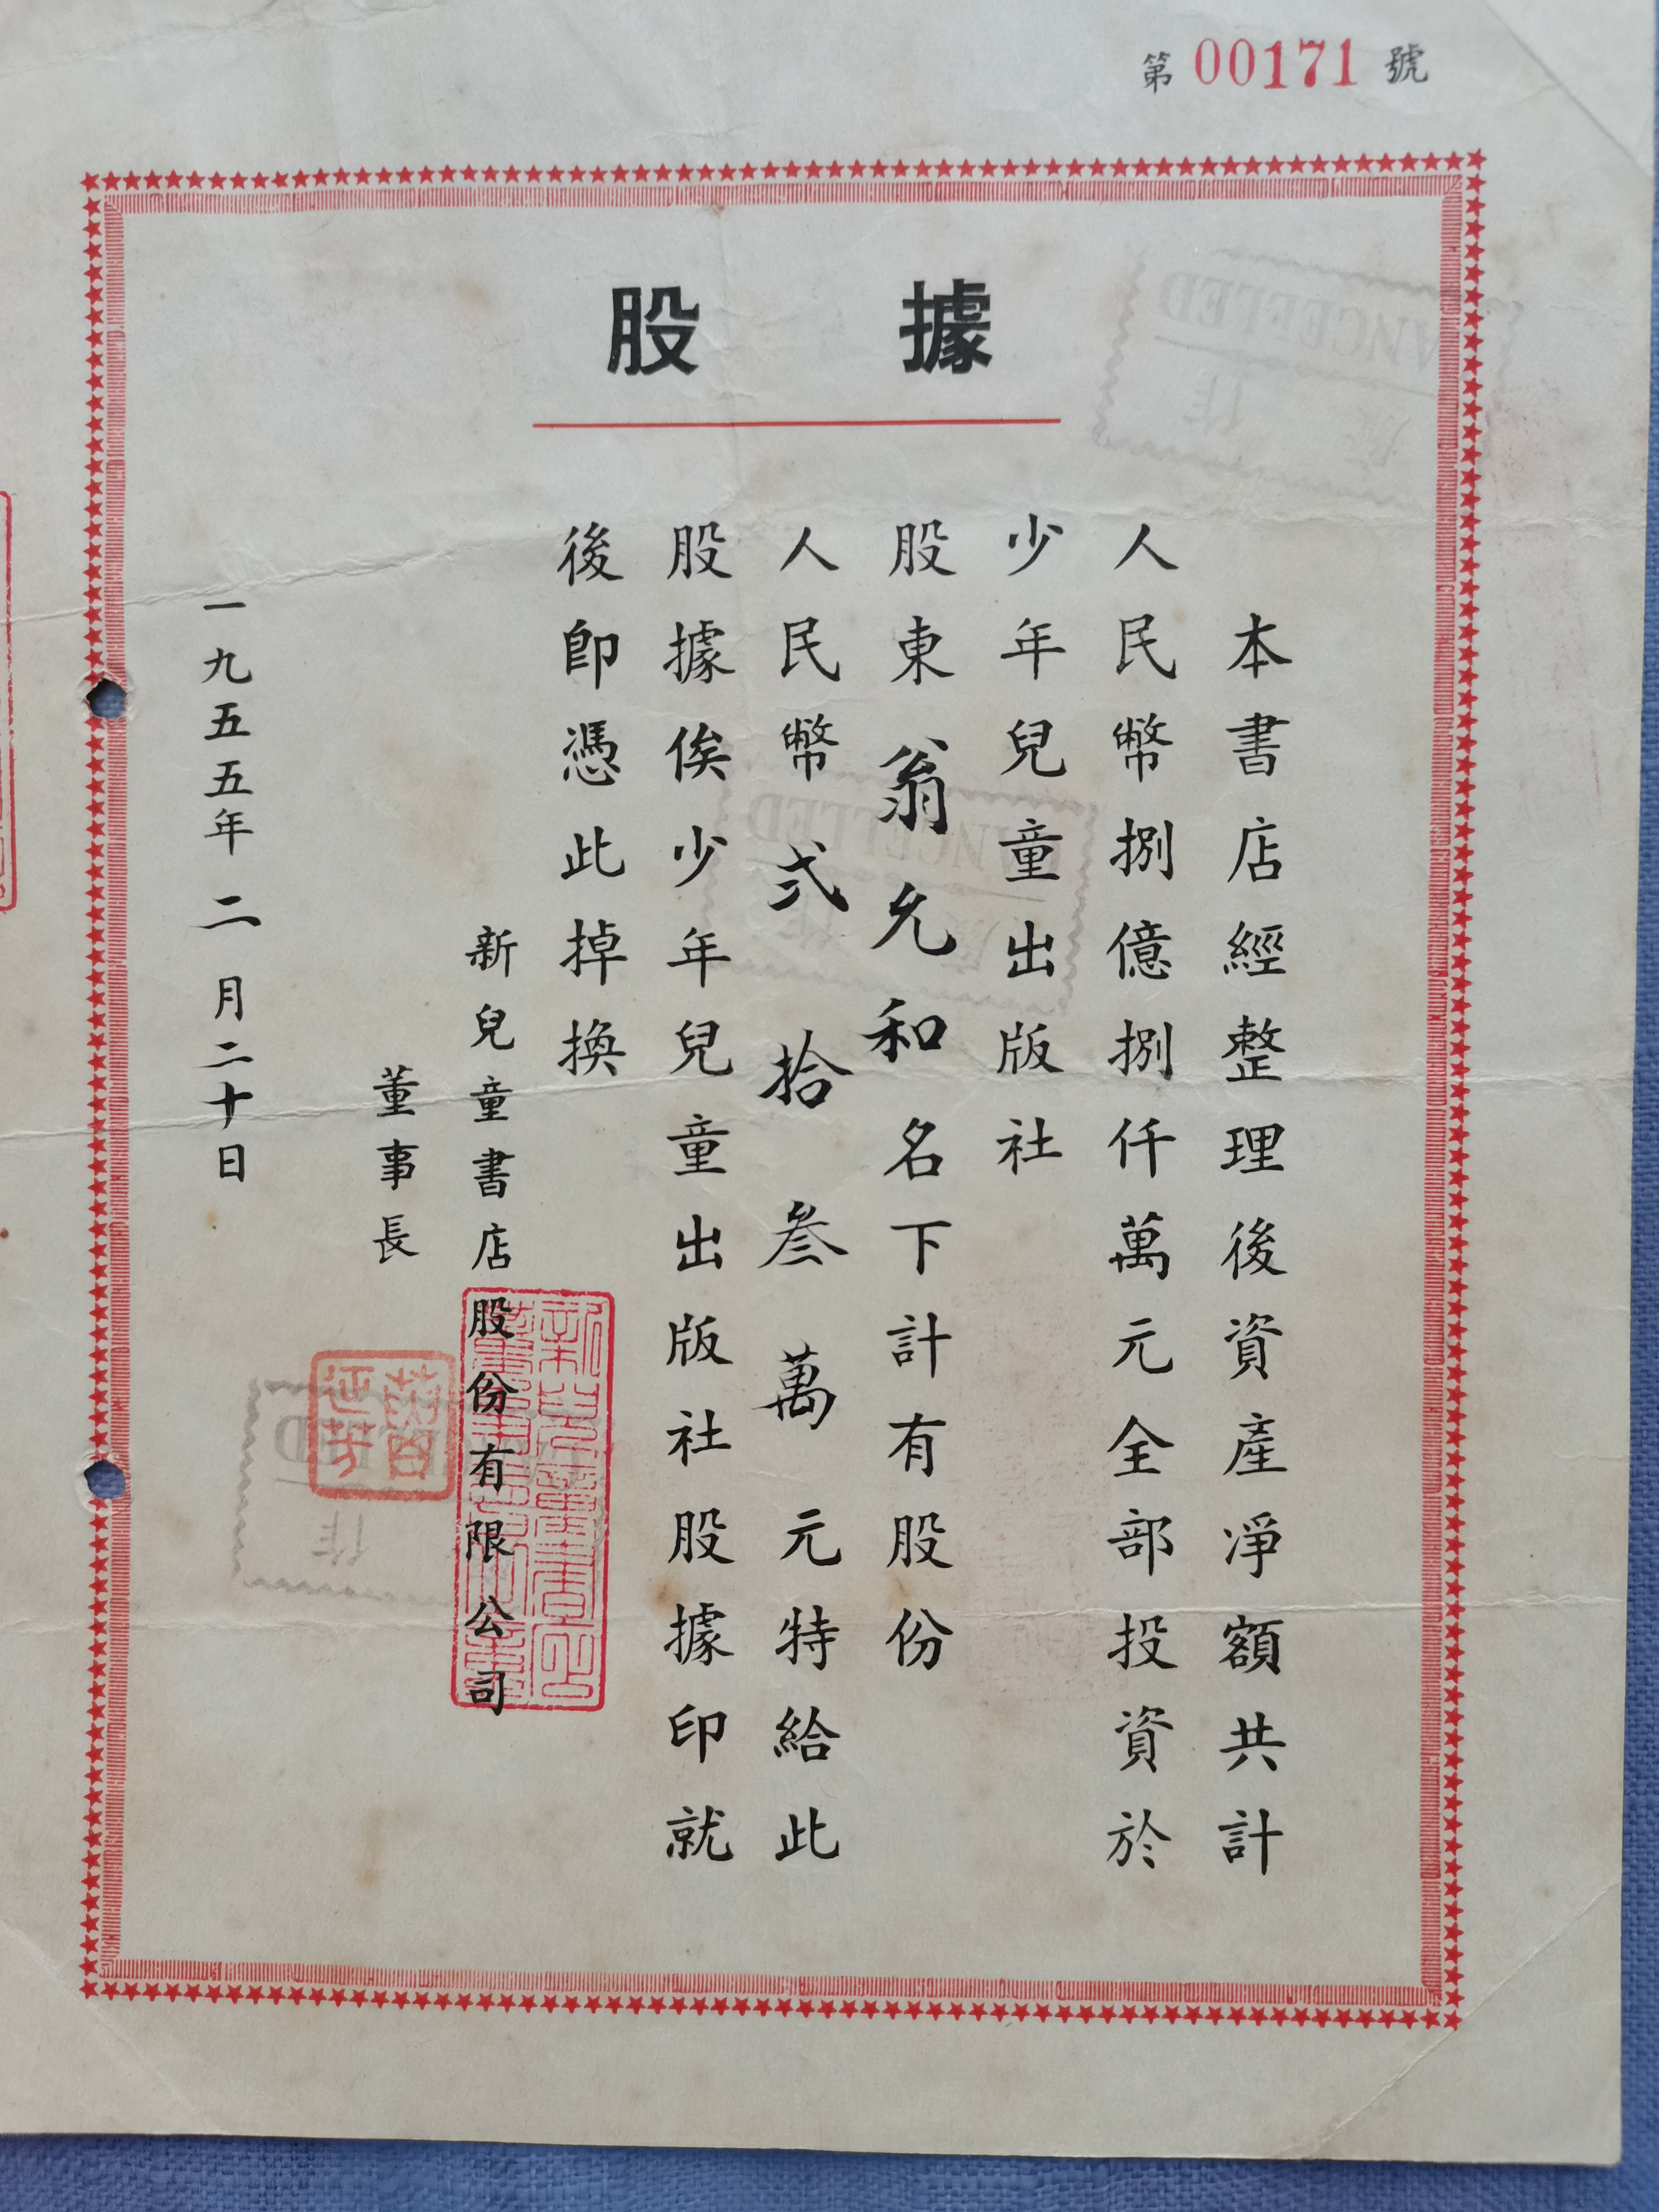 第 00171 號
股據
本書店經整理後資產淨額共計
人民幣捌億捌仟萬元全部投資於
少年兒童出版社
股東翁允和名下計有股份
人民幣弍拾叁萬元特給此
股據俟少年兒童出版社股據印就
後卽憑此掉換
新兒童書店股份有限公司
董事長
一九五五年二月二十日